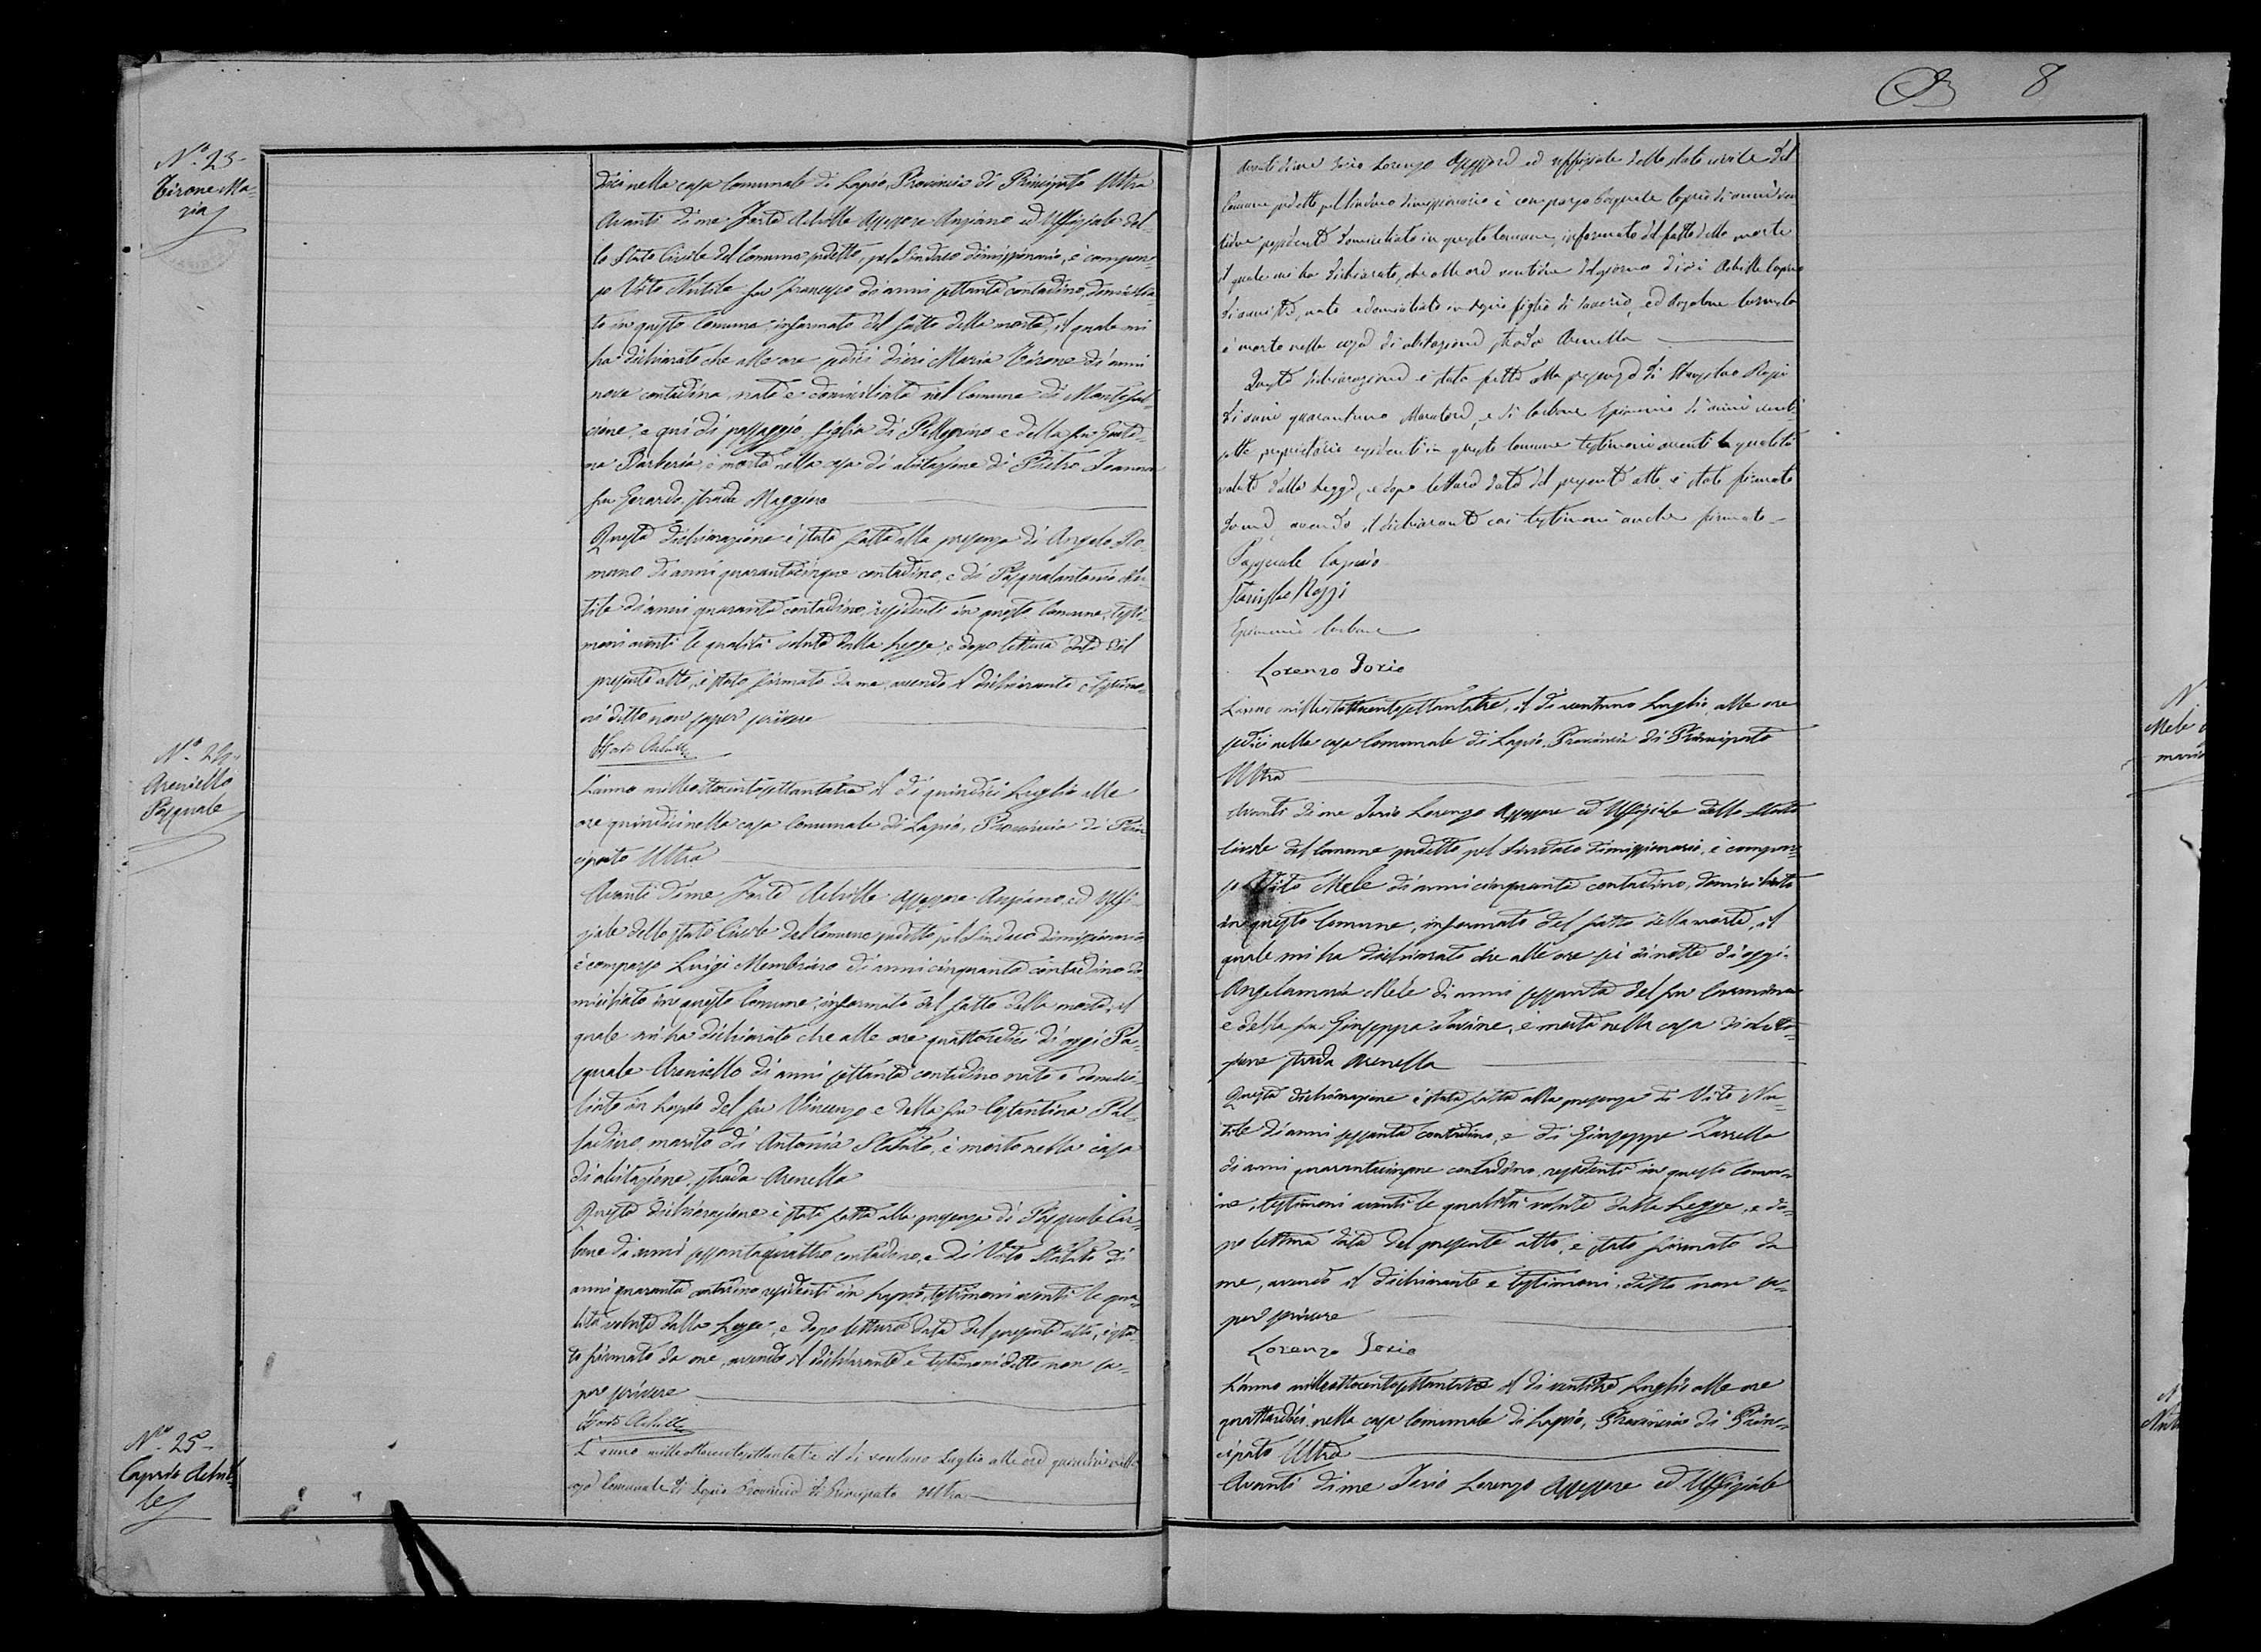 N.° 23-
Tirone Ma-
ria
dici nella casa Comunale di Lapio, Provincia di Principato Ultra
Avanti di me Forte Achille Assessore Anziano ed Uffiziale del-
lo Stato Civile del Comune sudetto, pel Sindaco dimissionario, è compar-
so Vito Nutile fu Francesco di anni settanta contadino, domicilia-
to in questo Comune, informato del fatto della morte, il quale mi
ha dichiarato che alle ore sedici d'ieri Maria Tirone di anni
nove contadina, nata e domiciliata nel Comune di Montefal-
cione, e qui di passaggio figlia di Pellegrino e della fu
Barberia è morta nella casa di abitazione di Pietro
fu Gerardo, strada Maggiore
Questa dichiarazione è stata fatta alla presenza di Angelo Ro-
mano di anni quarantacinque contadino, e di Pasqualantonio Nu-
tile di anni quaranta contadino, residenti in questo Comune, testi-
moni aventi le qualità volute dalla Legge, e dopo lettura data del
presente atto, è stato firmato da me, avendo il dichiarante e testimo-
ni detto non saper scrivere
Forte Achille
N.° 24-
Areniello
Pasquale
L'anno milleottocentosettantatre il di quindici Luglio alle
ore quindici nella casa Comunale di Lapio, Provincia di Prin-
cipato Ultra
Avanti di me Forte Achille Assessore Anziano, ed Uffi-
ziale dello Stato Civile del Comune sudetto pel Sindaco dimissionario
è comparso Luigi Membrino di anni cinquanta contadino do-
miciliato in questo Comune, informato del fatto della morte, il
quale mi ha dichiarato che alle ore quattordici di oggi Pa-
squale Areniello di anni settanta contadino nato e domici-
liato in Lapio del fu Vincenzo e della fu Costantina Pal-
ladino, marito di Antonia Stabito, è morto nella casa
di abitazione, strada Arenella
Questa dichiarazione è stata fatta alla presenza di Pasquale Car-
bone di anni sessantaquattro contadino, e di Vito Stabito di
anni quaranta contadino residenti in Lapio, testimoni aventi le qua-
lità volute dalla Legge, e dopo lettura data del presente atto, è sta-
to firmato da me, avendo il dichiarante e testimoni detto non sa-
pere scrivere
Forte Achille
N.° 25-
Caprio Achil-
le
L'anno milleottocentosettantatre il di ventuno Luglio alle ore quindici nella
casa Comunale di Lapio Provincia di Principato Ultra
8
Avanti di me Iorio Lorenzo Assessore ed uffiziale dello stato civile del
Comune sudetto pel Sindaco dimissionario è comparso Pasquale Caprio di anni
possidente domiciliato in questo Comune, informato del fatto della morte
il quale mi ha dichiarato, che alle ore ventidue del giorno d'ieri Achille Caprio
di anni tre, nato e domiciliato in Lapio figlio di Saverio, ed
è morto nella casa di abitazione strada Arenella
Questa dichiarazione è stata fatta alla presenza di Stanislao Rossi
di anni quarantuno Muratore, e di Carbone Epimenio di anni venti-
sette proprietario residenti in questo Comune testimoni aventi le qualità
volute dalla Legge, e dopo lettura data del presente atto è stato firmato
da me, avendo il dichiarante coi testimoni anche firmato-
Pasquale Caprio
Stanislao Rossi
Epimenio Carbone
Lorenzo Iorio
N
Mele
maria
L'anno milleottocentosettantatre, il di ventuno Luglio, alle ore
sedici nella casa Comunale di Lapio, Provincia di Principato
Ultra
Avanti di me Iorio Lorenzo Assessore ed Uffiziale dello Stato
Civile del Comune sudetto pel Sindaco dimissionario, è compar-
so Vito Mele di anni cinquanta contadino, domiciliato
in questo Comune, informato del fatto della morte, il
quale mi ha dichiarato che alle ore sei di notte di oggi
Angelamaria Mele di anni sessanta del fu
e della fu Giuseppa Iarine, è morta nella casa di abita-
zione strada Arenella
Questa dichiarazione è stata fatta alla presenza di Vito Nu-
tile di anni sessanta contadino, e di Giuseppe Zarrella
di anni quarantacinque contadino, residenti in questo Comu-
ne, testimoni aventi le qualità volute dalla Legge, e do-
po lettura data del presente atto, è stato firmato da
me, avendo il dichiarante e testimoni, detto non sa-
per scrivere
Lorenzo Iorio
N
L'anno milleottocentosettantatre il di ventitre Luglio alle ore
quattordici, nella casa Comunale di Lapio, Provincia di Prin-
cipato Ultra
Avanti di me Iorio Lorenzo Assessore ed Uffiziale